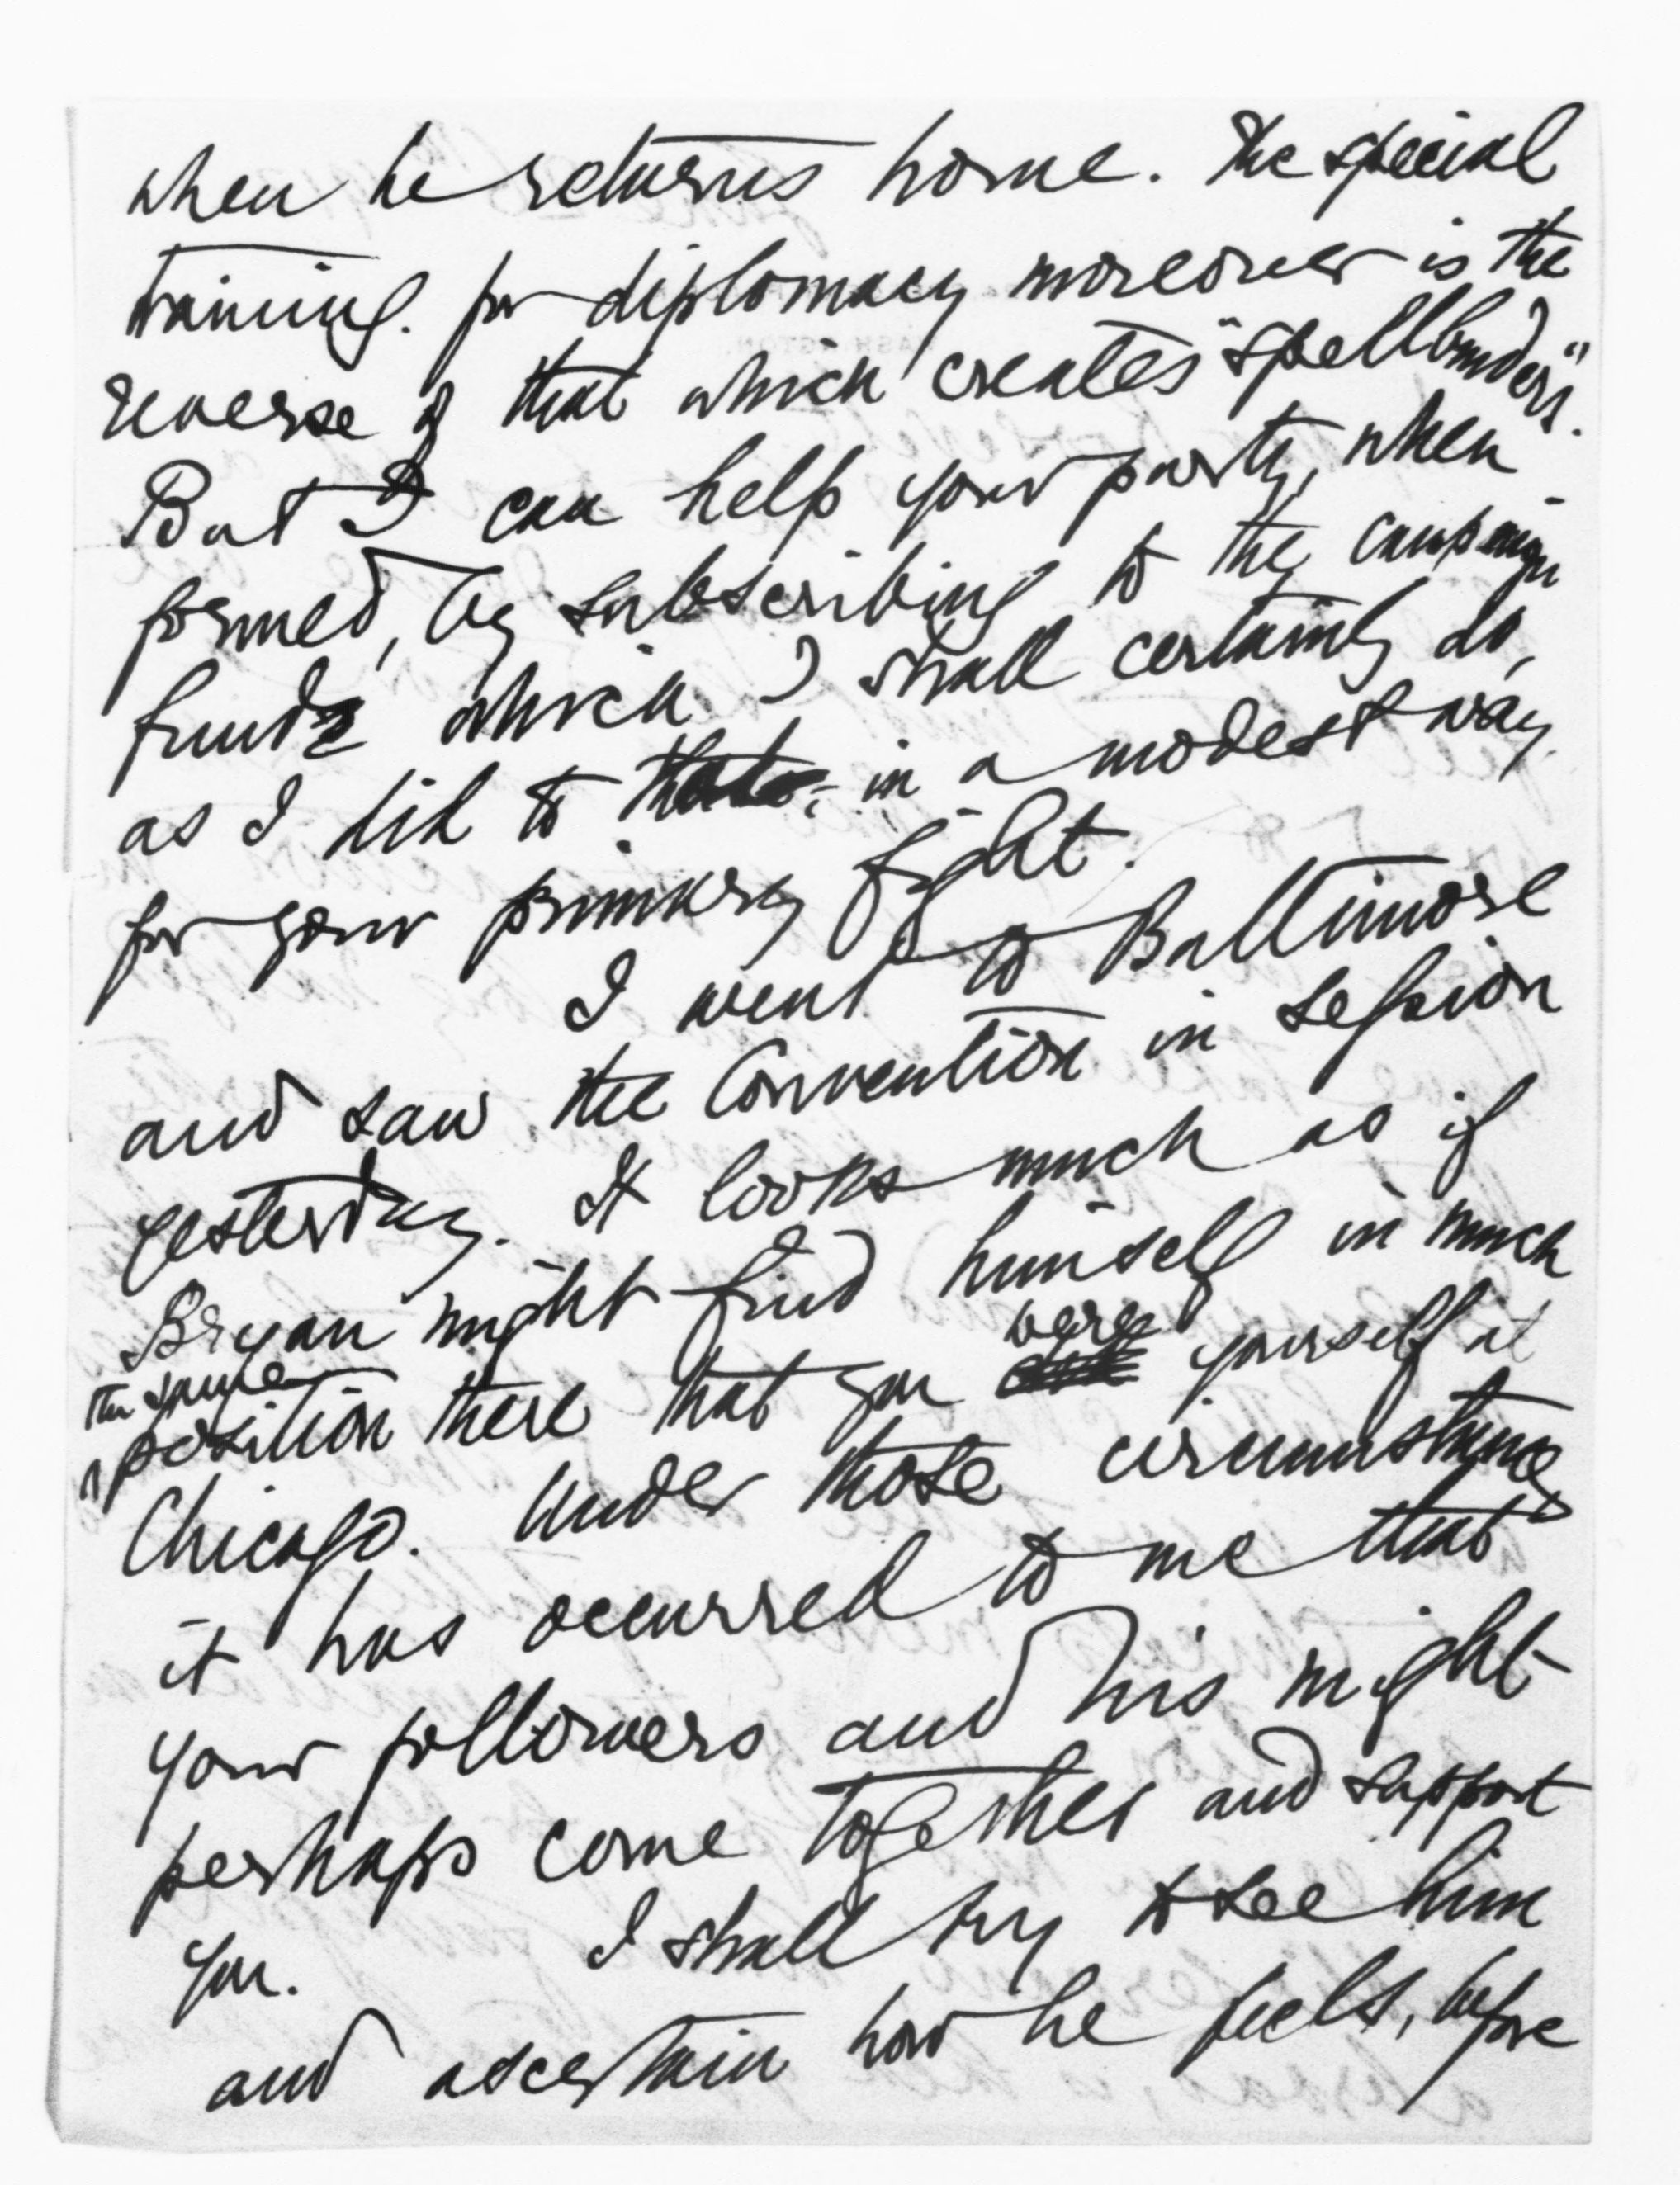 when he returns home. The special
training for diplomacy moreover is the
reverse of that which creates "spellbinders".
But I can help your party, when
formed, by subscribing to the campaign
funds which I shall certainly do,
as I did to in a modest way
for your primary fight.
I went to Baltimore
and saw the Convention in session
yesterday. It looks much as if
Bryan might find himself in much
the same position there that you were yourself at
Chicago. Under those circumstances
it has occurred to me that
your followers and his might
perhaps come together and support
you. I shall try to see him
and ascertain how he feels, before